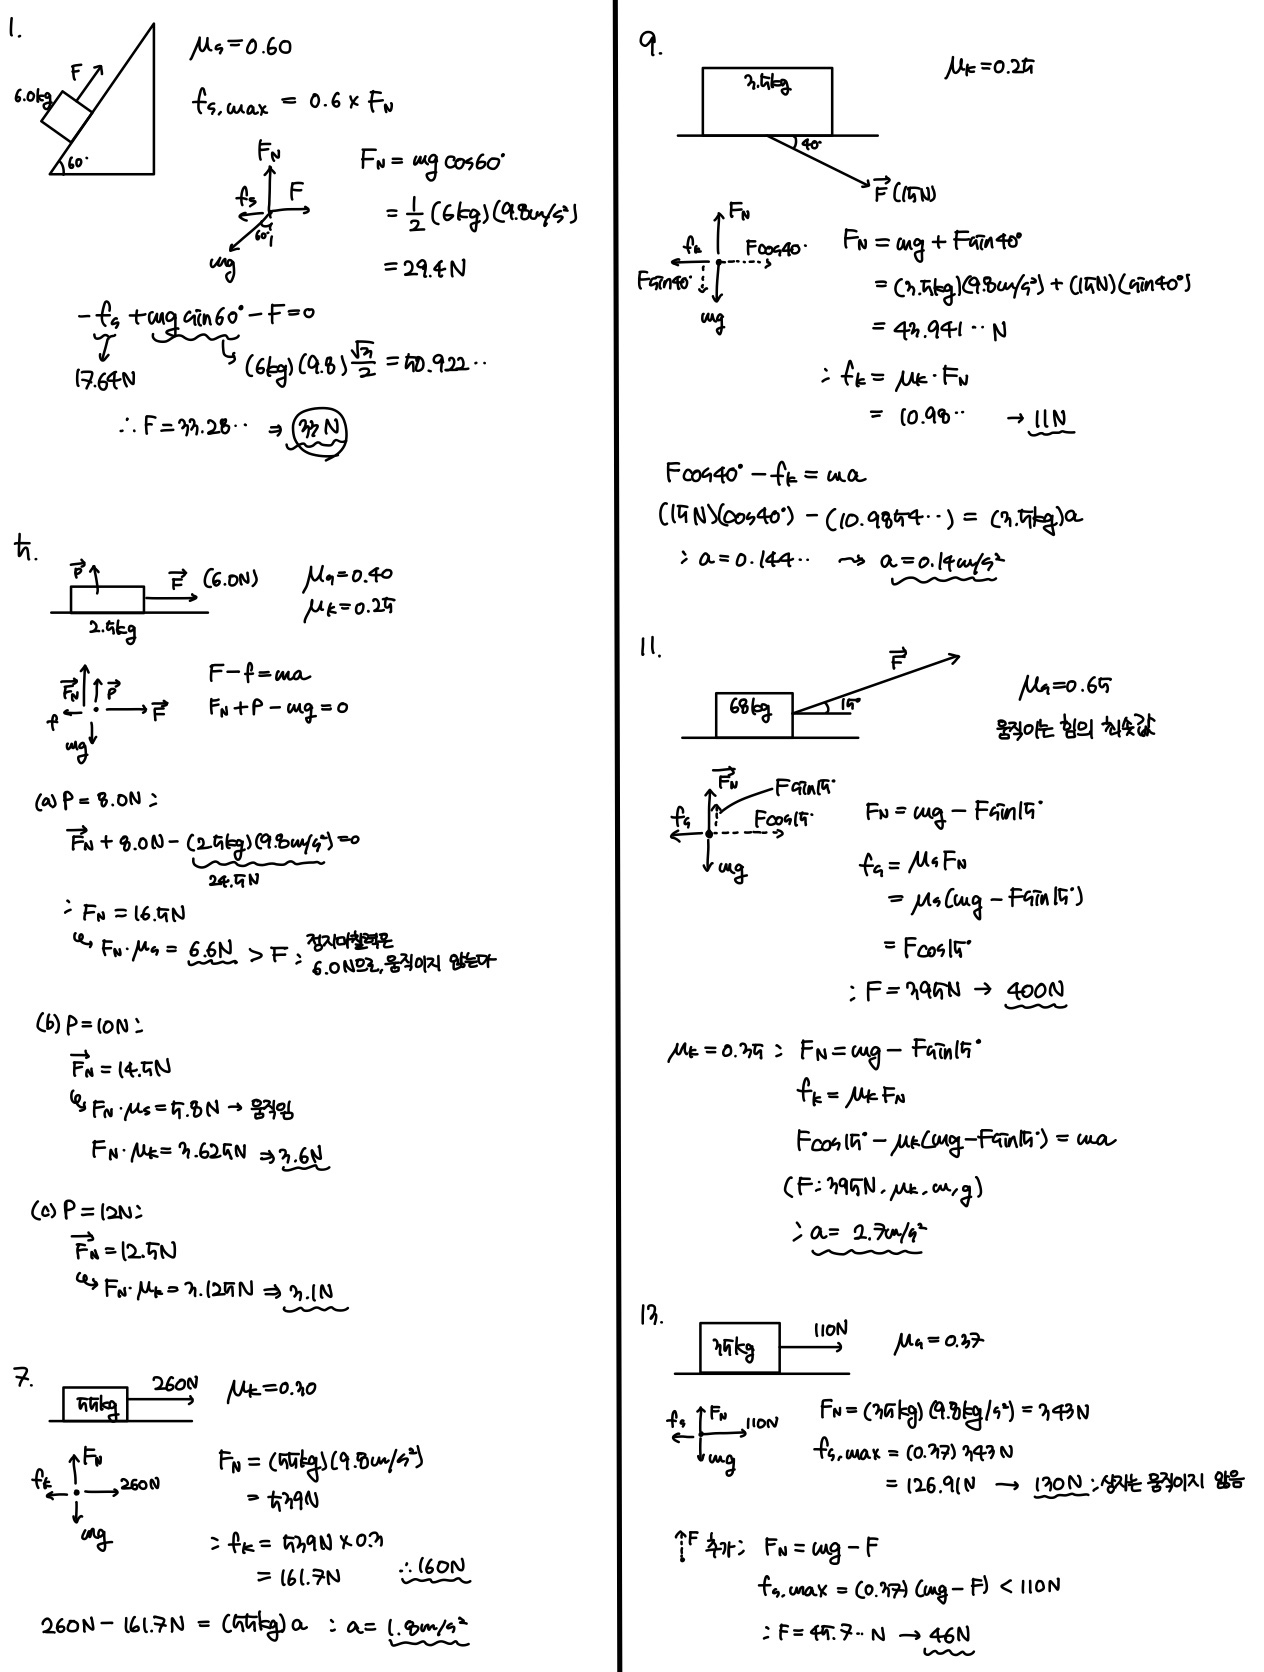 1.
F
6.0kg
60°
μs = 0.60
fs,max = 0.6 × FN
FN
fs
F
60°
mg
FN = mg cos60°
= 1/2 (6kg)(9.8m/s²)
= 29.4N
-fs + mg sin60° - F = 0
17.64N
(6kg)(9.8) √3/2 = 50.922··
∴ F = 33.28·· ⇒ 33N
5.
P
F (6.0N)
2.5kg
μs = 0.40
μk = 0.25
FN
P
f
F
mg
F - f = ma
FN + P - mg = 0
(a) P = 8.0N :
FN + 8.0N - (2.5kg)(9.8m/s²) = 0
24.5N
: FN = 16.5N
↳ FN·μs = 6.6N > F : 정지마찰력은
6.0N으로, 움직이지 않는다
(b) P = 10N :
FN = 14.5N
↳ FN·μs = 5.8N → 움직임
FN·μk = 3.625N ⇒ 3.6N
(c) P = 12N :
FN = 12.5N
↳ FN·μk = 3.125N ⇒ 3.1N
7.
260N
55kg
μk = 0.30
FN
fk
260N
mg
FN = (55kg)(9.8m/s²)
= 539N
: fk = 539N × 0.3
= 161.7N ∴ 160N
260N - 161.7N = (55kg)a : a = 1.8m/s²
9.
3.5kg
40°
F (15N)
μk = 0.25
FN
fk
Fcos40°
Fsin40°
mg
FN = mg + Fsin40°
= (3.5kg)(9.8m/s²) + (15N)(sin40°)
= 43.941·· N
: fk = μk·FN
= 10.98·· → 11N
Fcos40° - fk = ma
(15N)(cos40°) - (10.9854··) = (3.5kg)a
: a = 0.144·· → a = 0.14m/s²
11.
F
68kg
15°
μs = 0.65
움직이는 힘의 최솟값
FN
Fsin15°
fs
Fcos15°
mg
FN = mg - Fsin15°
fs = μsFN
= μs(mg - Fsin15°)
= Fcos15°
: F = 395N → 400N
μk = 0.35 : FN = mg - Fsin15°
fk = μkFN
Fcos15° - μk(mg - Fsin15°) = ma
(F : 395N, μk, m, g)
: a = 2.7m/s²
13.
35kg
110N
μs = 0.37
fs
FN
110N
mg
FN = (35kg)(9.8kg/s²) = 343N
fs,max = (0.37) 343N
= 126.91N → 130N : 상자는 움직이지 않음
↑F 추가 : FN = mg - F
fs,max = (0.37)(mg - F) < 110N
: F = 45.7·· N → 46N